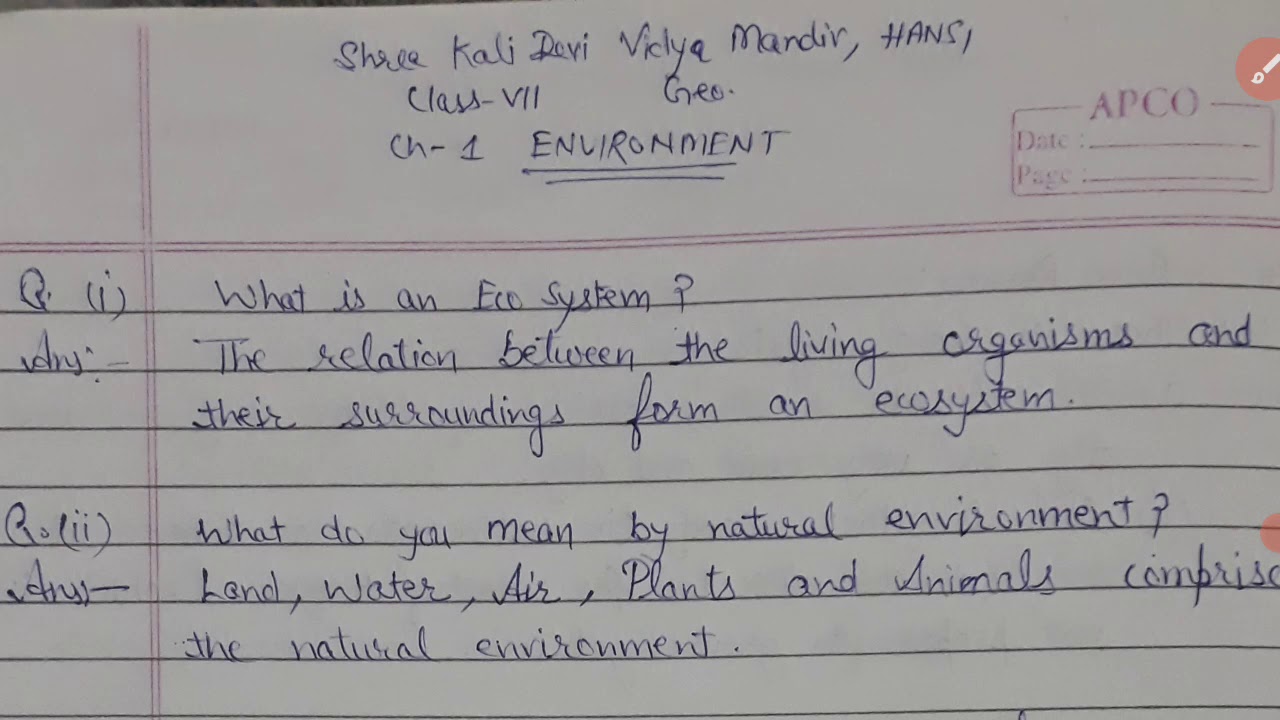 Shree Kali Devi Vidya Mandir, HANSI
Class-VII Geo.
Ch-1 ENVIRONMENT
APCO
Date :
Page :
Q. (i) What is an Eco System?
Ans:- The relation between the living organisms and
their surroundings form an ecosystem.
Q.(ii) What do you mean by natural environment?
Ans- Land, Water, Air, Plants and Animals comprise
the natural environment.